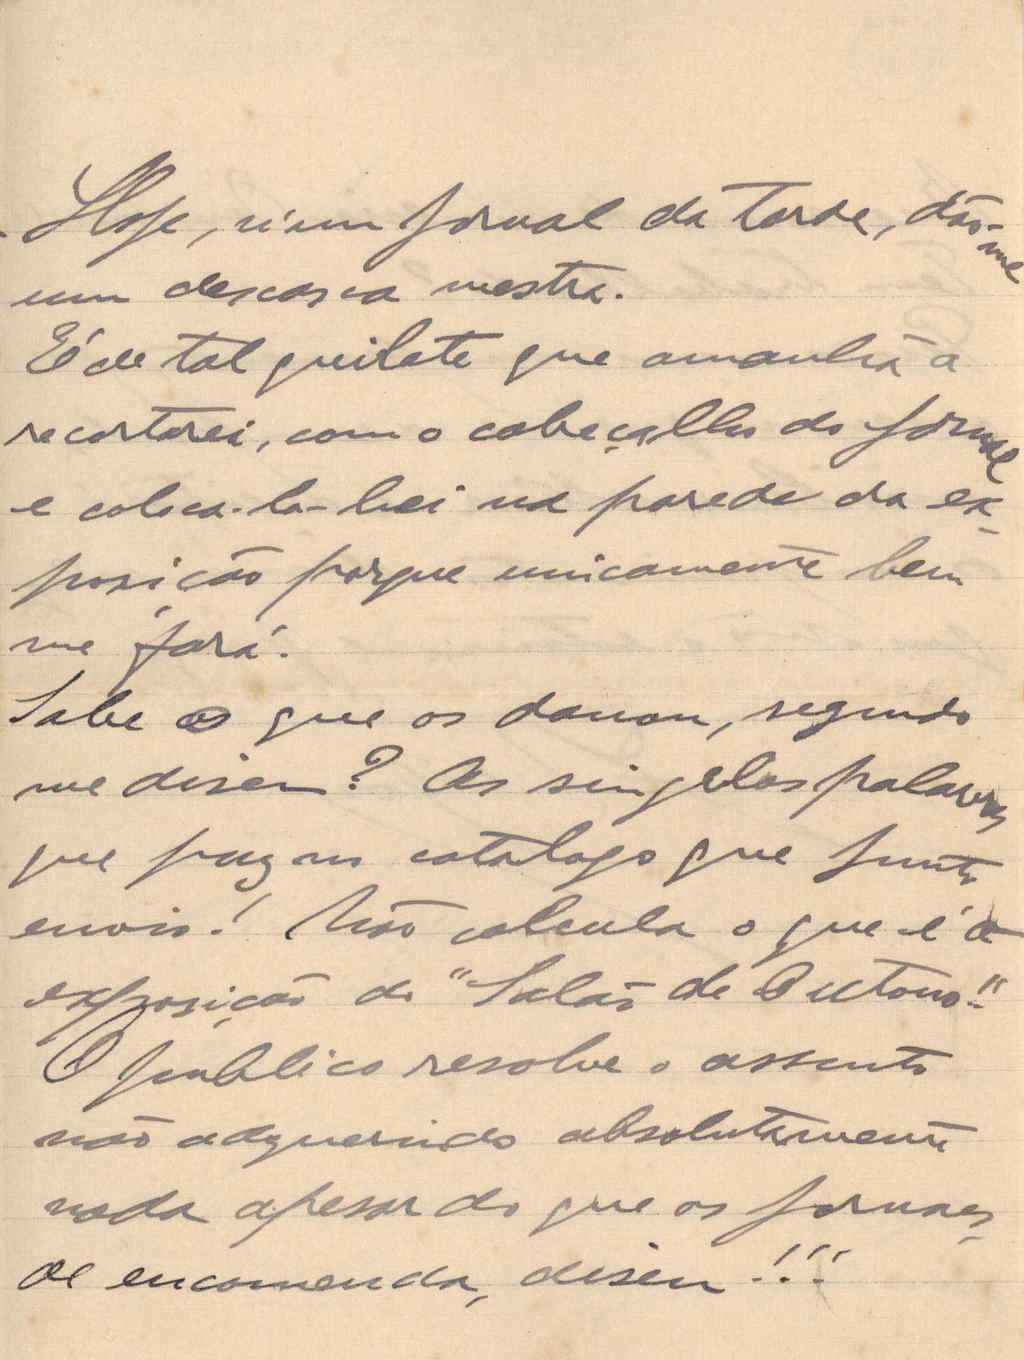 Hoje, n'um jornal da tarde, dão-me
um descasca mestra.
É de tal quilate que amanhã a
recortarei, com o cabeçalho do jornal
e coloca-la-hei na parede da ex-
posição porque unicamente bem
me fará.
Sabe o que os danou, segundo
me disem? As singelas palavras
que puz no catalogo que junto
envio! Não calcula o que é a
exposição do "Salão de Outono."
O publico resolve o assunto
não adquerindo absolutamente
nada apesar do que os jornaes,
de encomenda, disem!!!